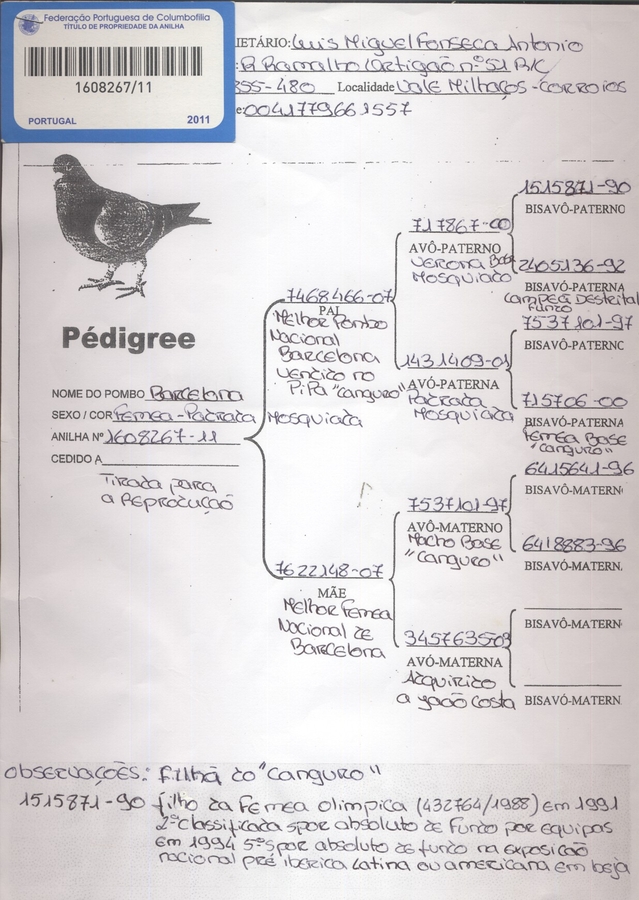 Federação Portuguesa de Columbofilia
TÍTULO DE PROPRIEDADE DA ANILHA
1608267/11
PORTUGAL 2011
IETÁRIO: Luis Miguel Fonseca Antonio
: R Ramalho Ortigão nº 51 R/C
355-480 Localidade Vale Milhaços - CORROIOS
e: 0041779661557
Pédigree
NOME DO POMBO Barcelona
SEXO / COR Femea - Padrada Mosquiada
ANILHA Nº 1608267-11
CEDIDO A
Tirada para
a Reprodução
7468466-07
PAI
Melhor Pombo
Nacional
Barcelona
vendido no
PiPa "canguro"
7622148-07
MÃE
Melhor Femea
Nacional de
Barcelona
717867-00
AVÔ-PATERNO
VERONA Base
Mosquiado
1431409-01
AVÓ-PATERNA
Padrada
Mosquiada
7537101-97
AVÔ-MATERNO
Macho Base
"canguro"
3457635-03
AVÓ-MATERNA
Adquirido
a João Costa
1515871-90
BISAVÔ-PATERNO
2405136-92
BISAVÓ-PATERNA
campeã Destrital
Fundo
7537101-97
BISAVÔ-PATERNO
715706-00
BISAVÓ-PATERNA
Femea Base
"canguro"
6415641-96
BISAVÔ-MATERN
6418883-96
BISAVÓ-MATERN
BISAVÔ-MATERN
BISAVÓ-MATERN
observações: filha do "canguro"
1515871-90 filho da Femea olimpica (432764/1988) em 1991
2ª classificada spor absoluto de Fundo por equipas
em 1994 5º spor absoluto de fundo na exposição
nacional pré iberica Latina ou americana em beja